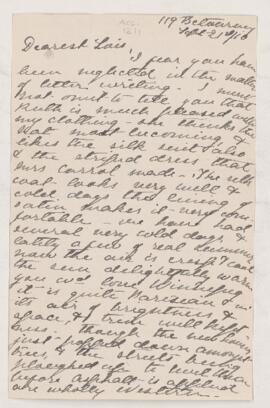 119 Betournay
Acc. 1211
Sept 21st/10
Dearest Lois,
I fear you have
been neglected in the matter
of letter writing. I must
not omit to tell you that
Ruth is much pleased with
my clothing. She thinks the
Hat most becoming & also
likes the silk suit
& the striped dress that
Mrs Carrol made. The silk
coat looks very well &
cold days the lining of
satin makes it very com-
fortable – we have had
several very cold days, &
lately a few of real summer
now the air is crisp & cool
the sun delightfully warm
you wd love Winnipeg
it is quite Parisian in
its air of brightness &
space, & trim well kept
ness. though the new houses
just popped down amongst
trees, & the streets being
ploughed up to
before asphalt is applied
are wholly Western.